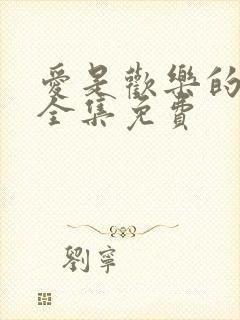 愛是歡樂的
全集免費
劉寧